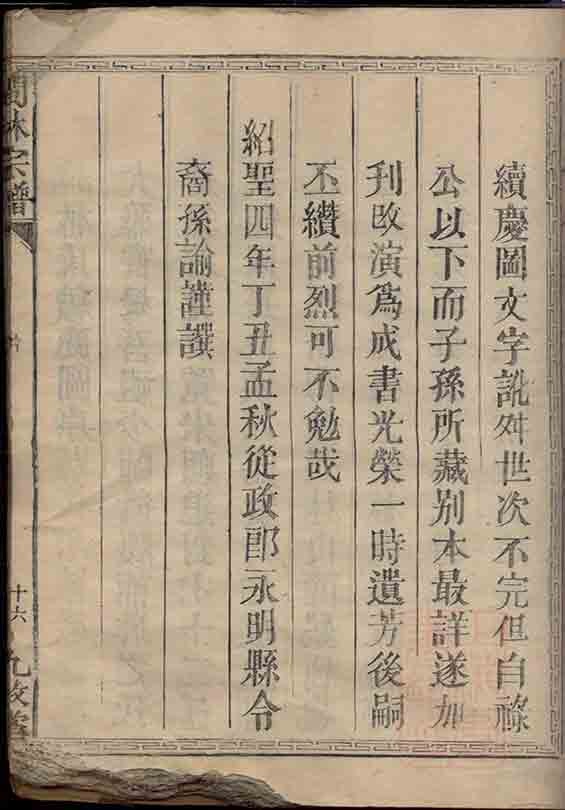 續慶圖文字訛舛世次不完但自祿
公以下而子孫所藏别本最詳遂加
刋改演爲成書光榮一時遺芳後嗣
丕纘前烈可不勉哉
紹聖四年丁丑孟秋從政郎永明縣令
裔孫諭謹譔
林宗譜
十六